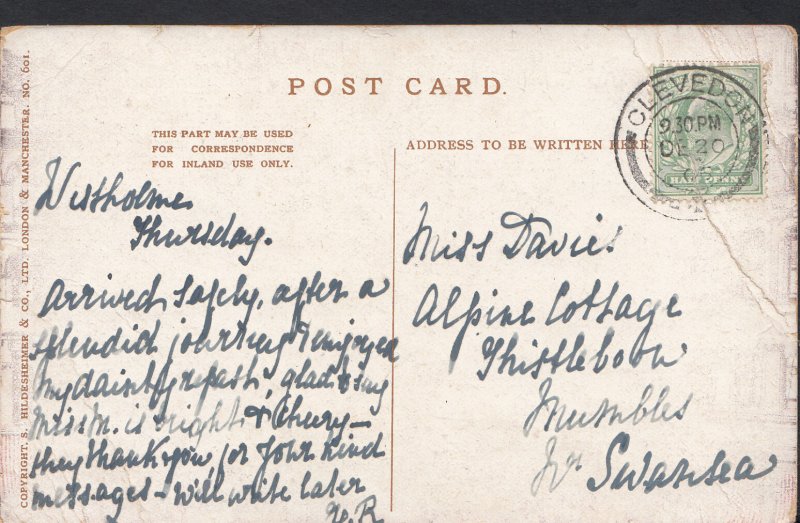 POST CARD.
THIS PART MAY BE USED
FOR CORRESPONDENCE
FOR INLAND USE ONLY.
ADDRESS TO BE WRITTEN HERE
COPYRIGHT. S. HILDESHEIMER & CO., LTD. LONDON & MANCHESTER. NO. 601.
CLEVEDON
9.30 PM
DE 20
HALF PENNY
Westholme
Thursday.
Arrived safely, after a
splendid journey & enjoyed
my dainty repast, glad to say
Miss M. is right & cheery –
they thank you for your kind
messages – will write later
R
Miss Davies
Alpine Cottage
Thistleboon
Mumbles
Nr Swansea